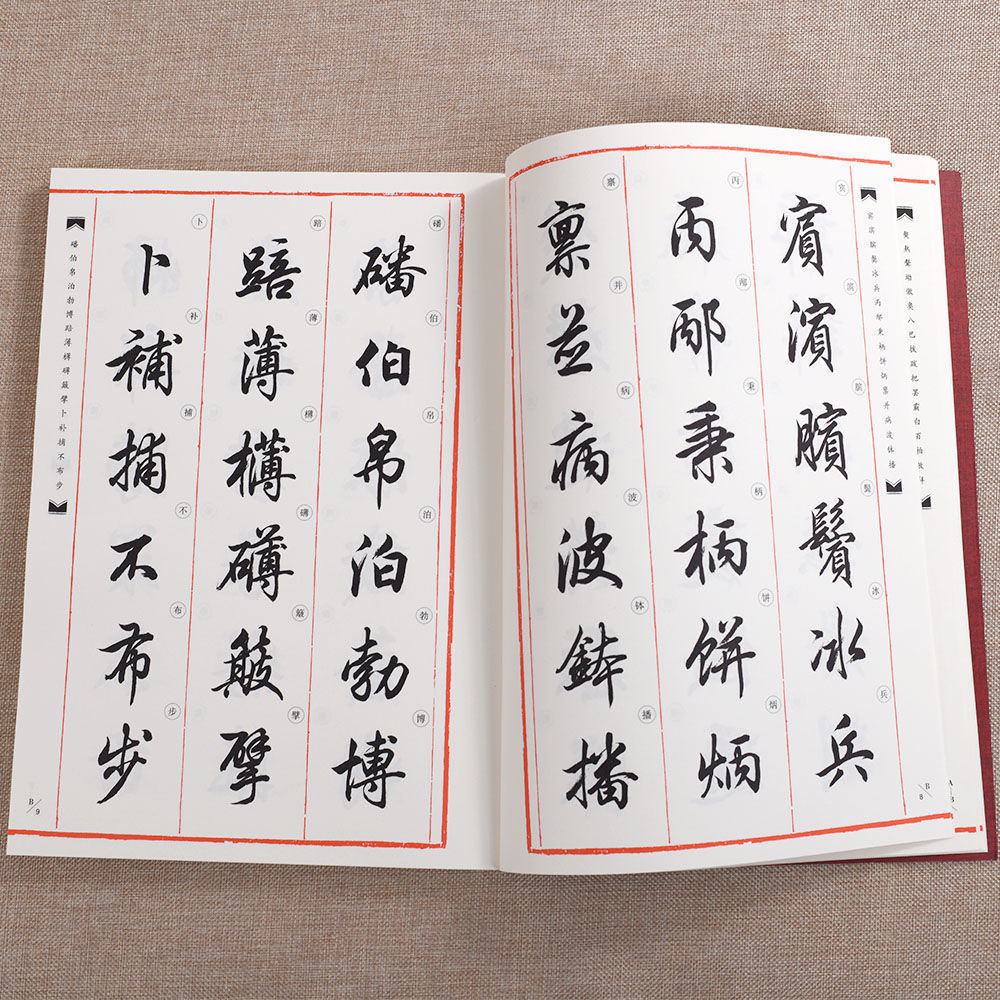 熬螯坳傲奥八巴拔跋把罢霸白百
宾滨膑鬓冰兵丙邴秉柄饼炳禀并病波钵播
宾滨膑鬓冰兵
賓濱臏鬢冰兵
丙邴秉柄饼炳
丙邴秉柄餅炳
禀并病波钵播
禀並病波鉢播
B/8
磻伯帛泊勃博
磻伯帛泊勃博
踣薄欂礴簸擘
踣薄欂礴簸擘
卜补捕不布步
卜補捕不布步
磻伯帛泊勃博踣薄欂礴簸擘卜补捕不布步
B/9